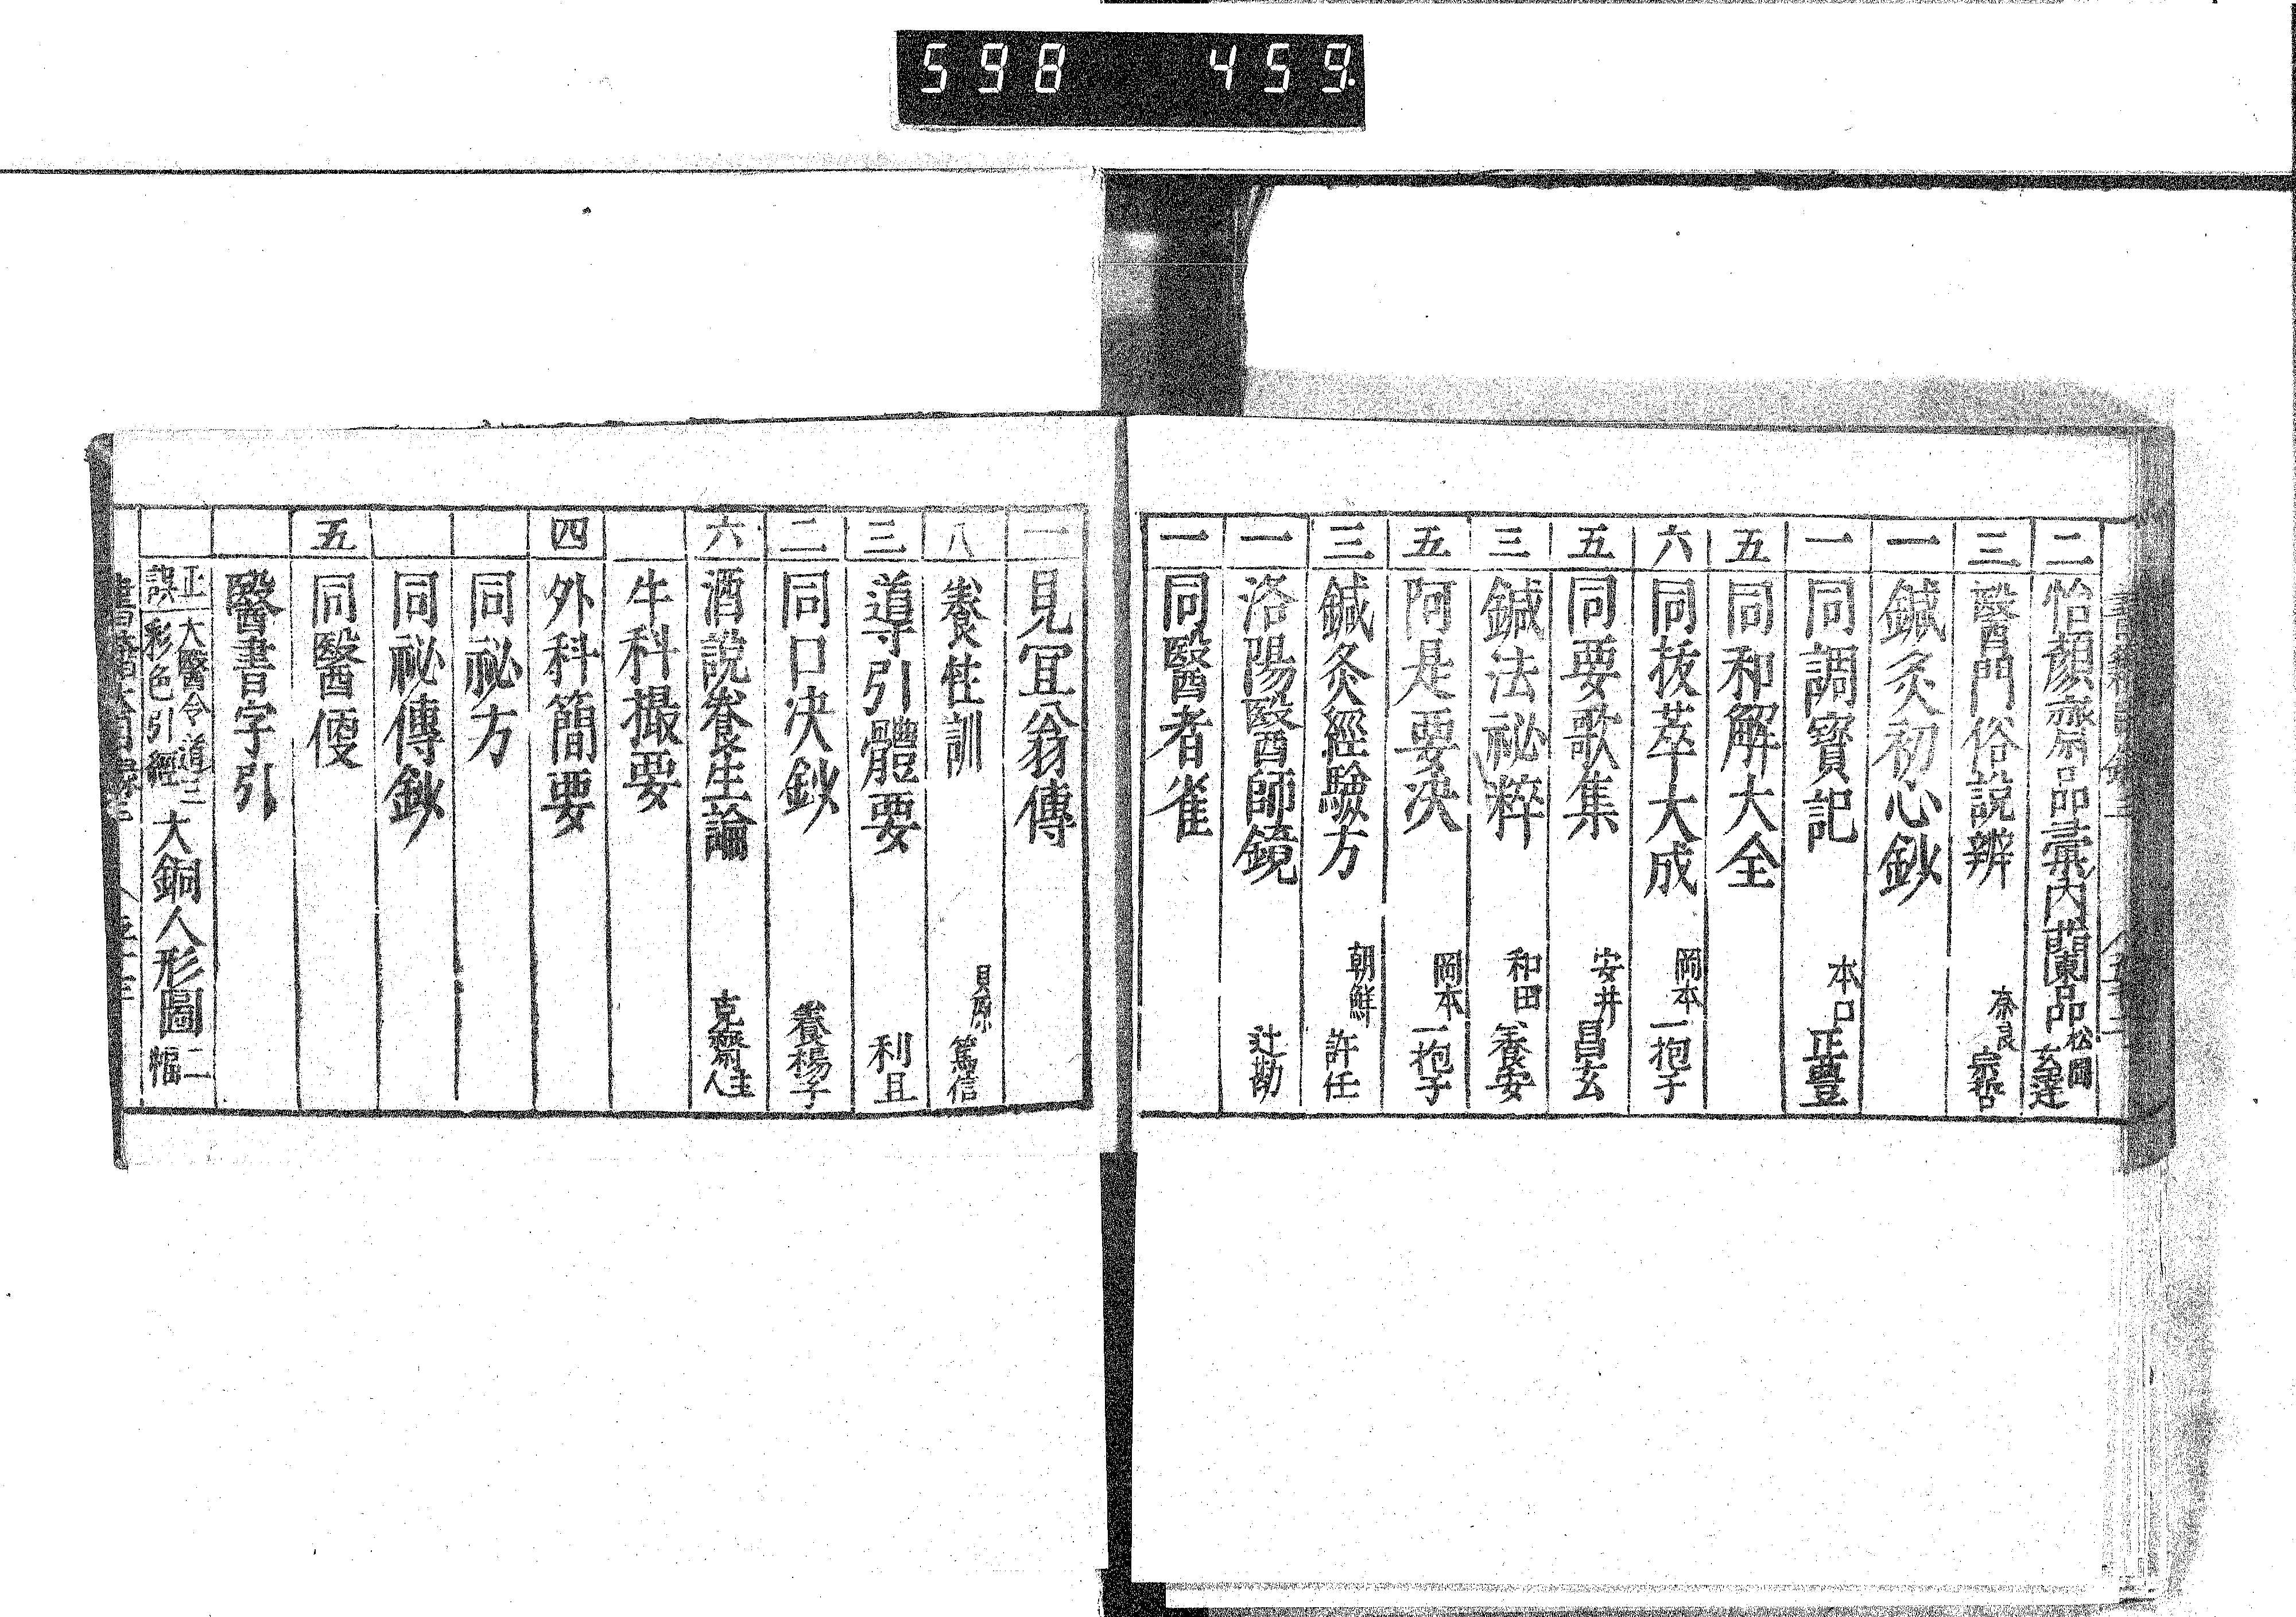 598 459.
二 怡顔齋品彙内蘭品 松岡玄達
三 醫門俗説辨 奈良宗哲
一 鍼灸初心鈔
一 同調寶記 本口正豊
五 同和解大全
六 同抜萃大成 岡本一抱子
五 同要歌集 安井昌玄
三 鍼法祕粹 和田養安
五 阿是要决 岡本一抱子
三 鍼灸經驗方 朝鮮許任
一 洛陽醫師鏡 辻勘
一 同醫者雀
一 見宜翁傳
八 養性訓 貝原篤信
三 導引體要 利且
二 同口决鈔 養楊子
六 酒説養生論 克齋主人
牛科撮要
四 外科簡要
同祕方
同祕傳鈔
五 同醫便
醫書字引
正誤 大醫令道三彩色引經 大銅人形圖 二幅